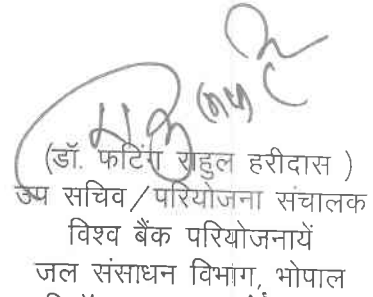 (डॉ. फटिंग राहुल हरीदास )
उप सचिव/परियोजना संचालक
विश्व बैंक परियोजनायें
जल संसाधन विभाग, भोपाल